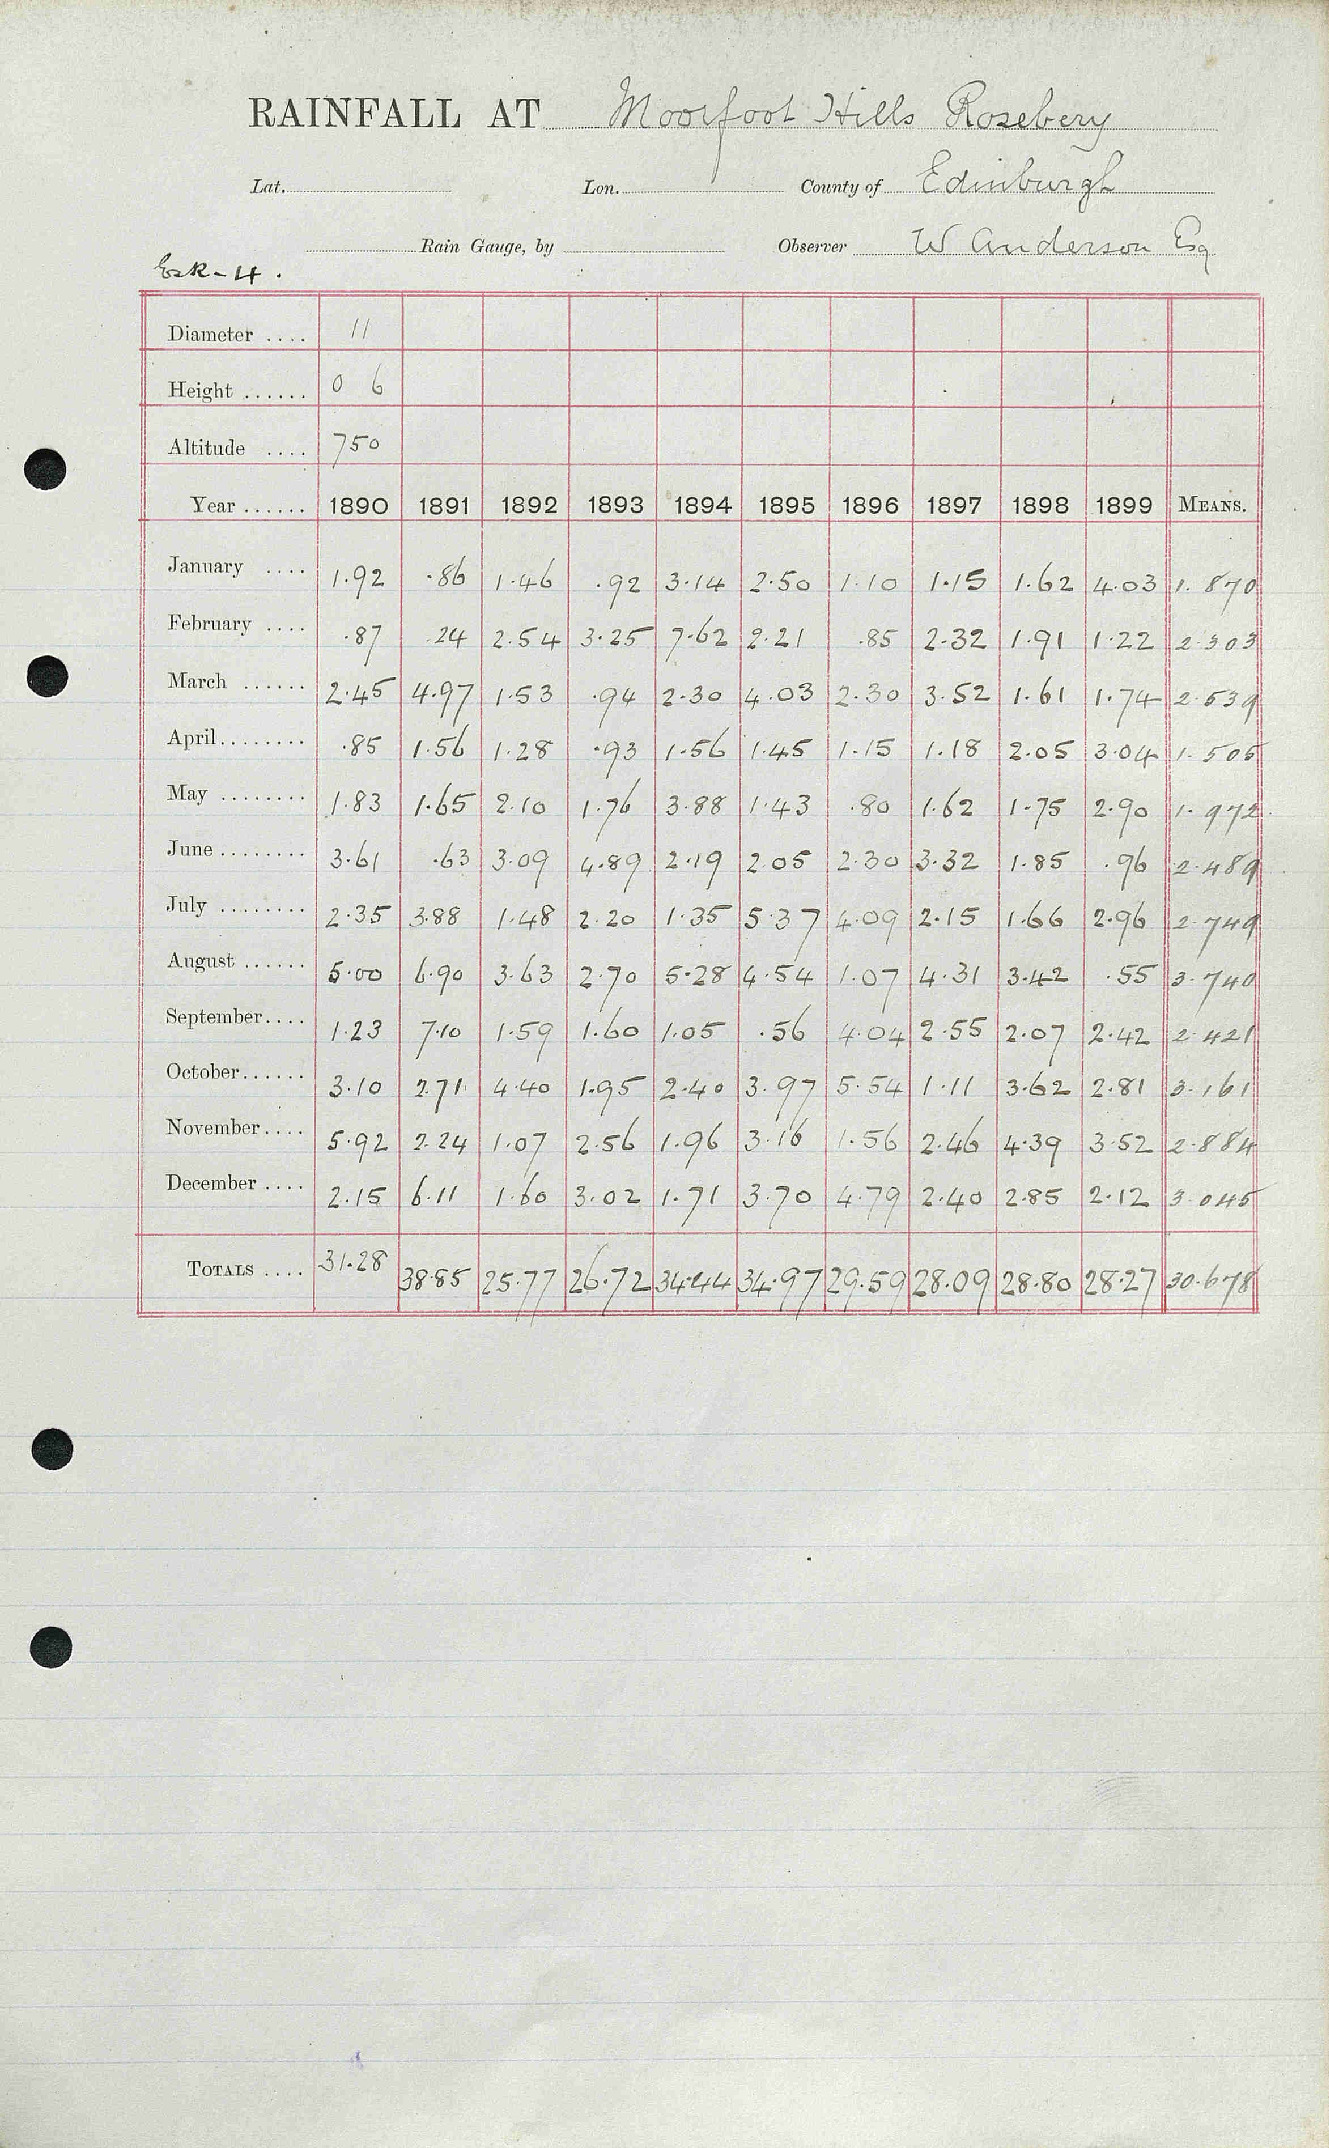 RAINFALL AT Moorfoot Hills Rosebery
Lat. Lon. County of Edinburgh
Rain Gauge, by Observer W Anderson Esq
Esk-4.
Diameter .... 11
Height ...... 0 6
Altitude .... 750
Year ...... 1890 1891 1892 1893 1894 1895 1896 1897 1898 1899 MEANS.
January .... 1.92 .86 1.46 .92 3.14 2.50 1.10 1.15 1.62 4.03 1.870
February .... .87 .24 2.54 3.25 7.62 2.21 .85 2.32 1.91 1.22 2.303
March ...... 2.45 4.97 1.53 .94 2.30 4.03 2.30 3.52 1.61 1.74 2.539
April........ .85 1.56 1.28 .93 1.56 1.45 1.15 1.18 2.05 3.04 1.505
May ........ 1.83 1.65 2.10 1.76 3.88 1.43 .80 1.62 1.75 2.90 1.972
June ........ 3.61 .63 3.09 4.89 2.19 2.05 2.30 3.32 1.85 .96 2.489
July ........ 2.35 3.88 1.48 2.20 1.35 5.37 4.09 2.15 1.66 2.96 2.749
August ...... 5.00 6.90 3.63 2.70 5.28 4.54 1.07 4.31 3.42 .55 3.740
September.... 1.23 7.10 1.59 1.60 1.05 .56 4.04 2.55 2.07 2.42 2.421
October...... 3.10 2.71 4.40 1.95 2.40 3.97 5.54 1.11 3.62 2.81 3.161
November.... 5.92 2.24 1.07 2.56 1.96 3.16 1.56 2.46 4.39 3.52 2.884
December .... 2.15 6.11 1.60 3.02 1.71 3.70 4.79 2.40 2.85 2.12 3.045
TOTALS .... 31.28 38.85 25.77 26.72 34.44 34.97 29.59 28.09 28.80 28.27 30.678